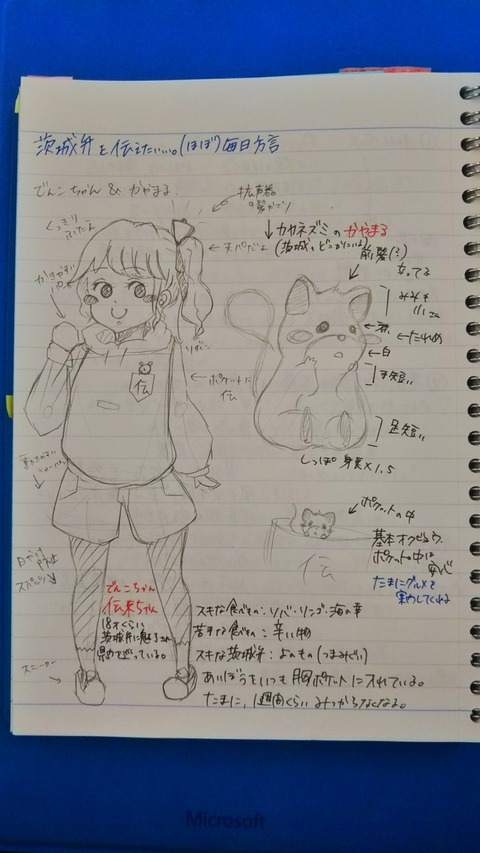 茨城弁を伝えたい…。(ほぼ)毎日方言
でんこちゃん & かやまる
拡声器の髪かざり
くっきりふたえ
天パだよ
カヤネズミのかやまる
(茨城のどこかにいるよ)
前髪(?)
立ってる
みみも小さい
たれめ
白
手短い
足短い
リボン
ポケットに伝
伝
しっぽ 身長×1.5
ポケットの中
伝
基本オクビョウ。
ポケットの中は安心
たまにグルメで
実わしてくれる
スニーカー
でんこちゃん
伝来ちゃん
18才くらい
茨城弁に魅
スキな食べもの:ソバ・リンゴ・海の幸
苦手な食べもの:辛い物
スキな茨城弁:よのもの(つまみぐい)
あいぼうをいつも胸ポケットに入れている。
たまに、1週間くらいみつからなくなる。
Microsoft